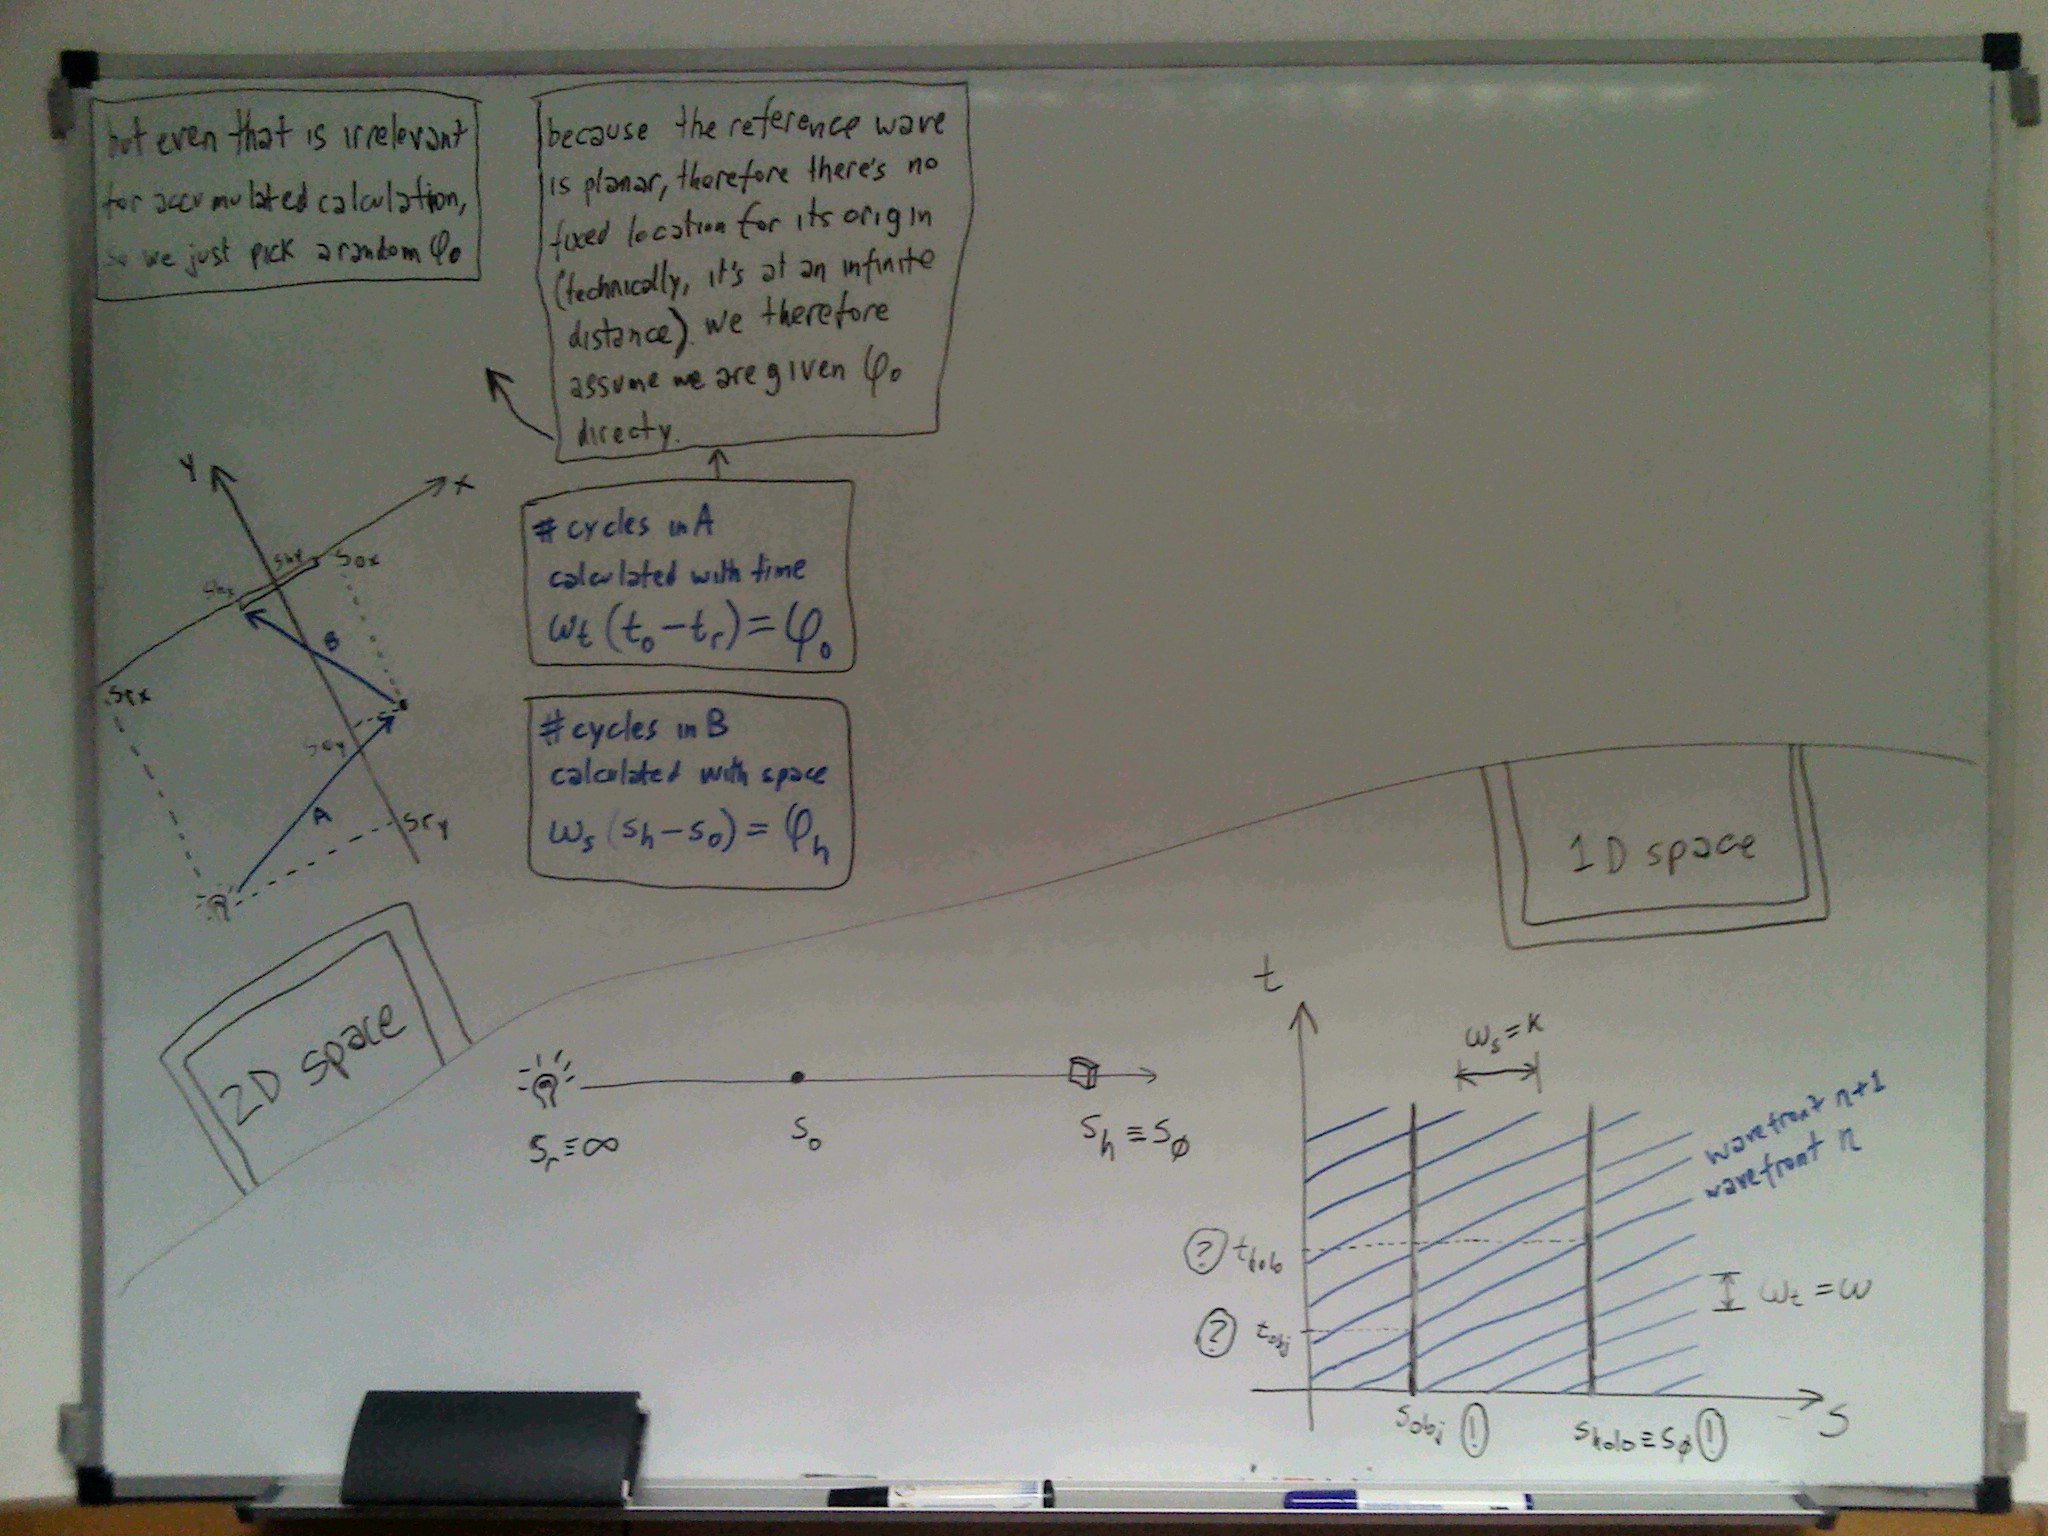 but even that is irrelevant
for accumulated calculation,
so we just pick a random φ₀
because the reference wave
is planar, therefore there's no
fixed location for its origin
(technically, it's at an infinite
distance). we therefore
assume we are given φ₀
directy.
# cycles in A
calculated with time
ωt (t₀ - tr) = φ₀
# cycles in B
calculated with space
ωs (sh - s₀) = φh
Y
X
shx
sox
B
srx
soy
A
sry
2D space
1D space
sr ≡ ∞
s₀
sh ≡ sø
t
ωs = k
wavefront n+1
wavefront n
? tholo
? tobj
ωt = ω
sobj !
sholo ≡ sø !
s